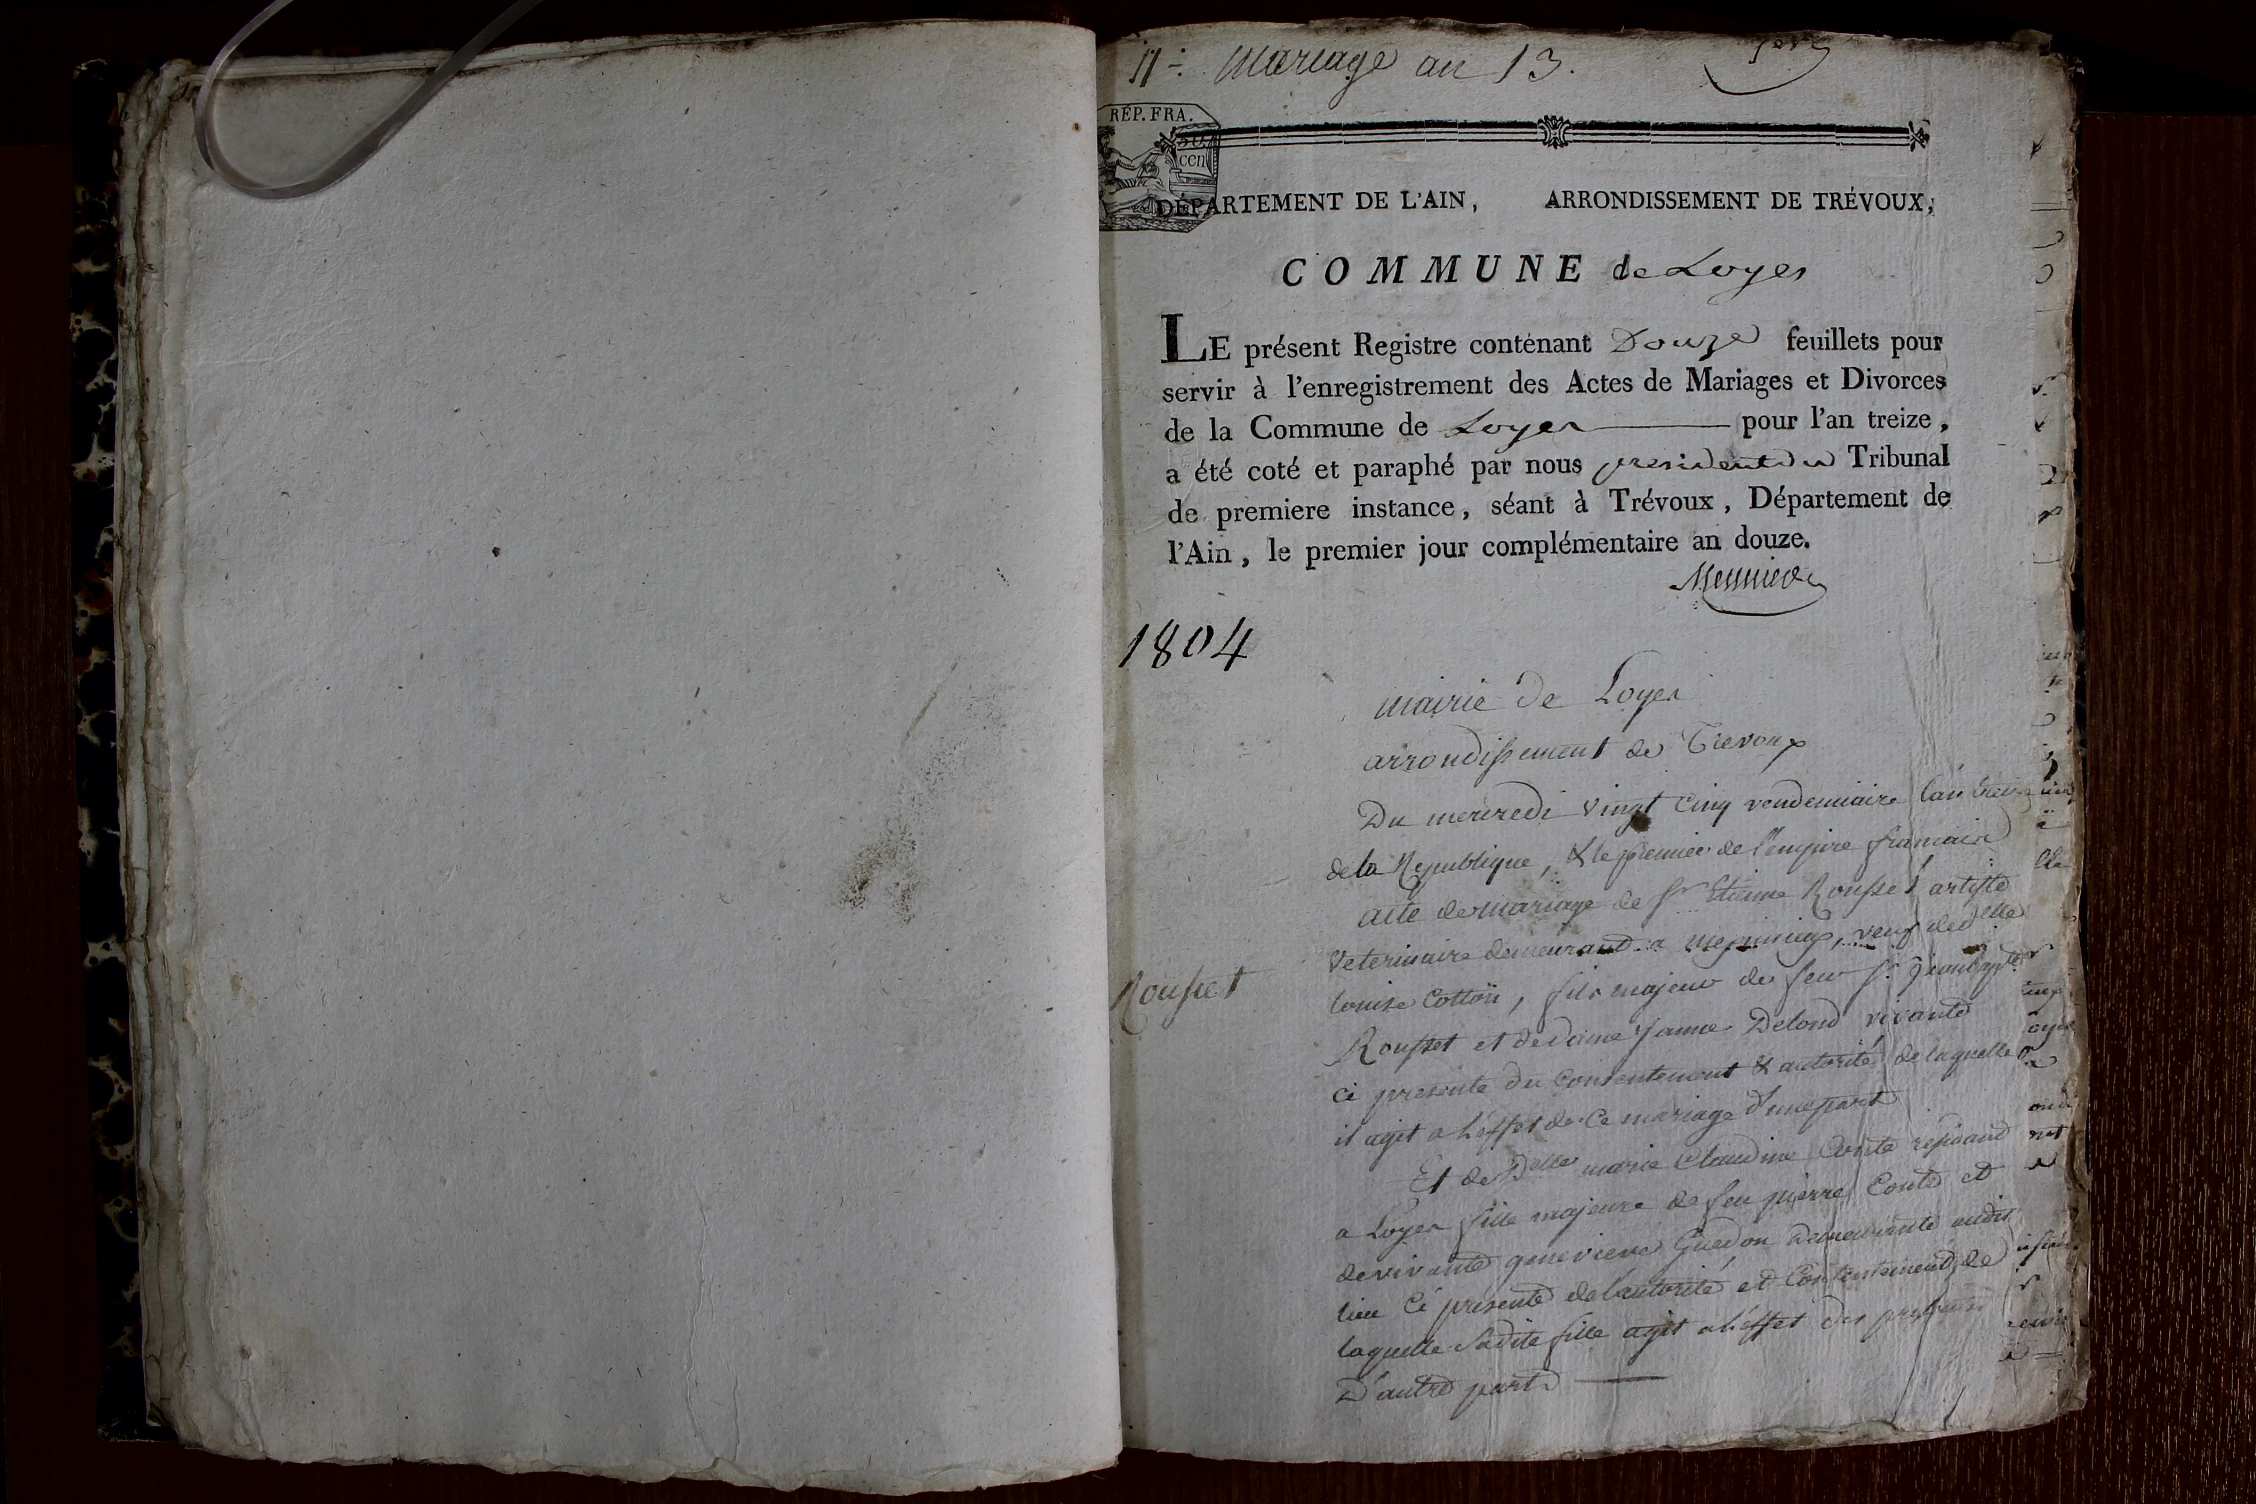 11. Mariage an 13.
RÉP. FRA.
50
cen
DÉPARTEMENT DE L'AIN, ARRONDISSEMENT DE TRÉVOUX,
COMMUNE de Loyes
LE présent Registre contenant Douze feuillets pour
servir à l'enregistrement des Actes de Mariages et Divorces
de la Commune de Loyes pour l'an treize,
a été coté et paraphé par nous president du Tribunal
de premiere instance, séant à Trévoux, Département de
l'Ain, le premier jour complémentaire an douze.
1804
mairie de Loyes
arrondissement de Trevoux
Du mercredi vingt cinq vendemiaire l'an treize
de la Republique, & le premier de l'empire francais
acte de mariage de Sr Etienne Rousset artiste
Veterinaire demeurant a meximieux, veuf de delle
Rousset
louise Cotton, fils majeur de feu Sr Jean bapte
Rousset et de dame Janne Delond vivante
ci presente du consentement & autorité de laquelle
il agit a l'effet de ce mariage d'une part
Et de Delle marie Claudine Conte residand
a Loyes fille majeure de feu pierre Conte et
de vivante genevieve Guedon demeurante audit
lieu ci presente de l'autorité et consentement de
laquelle sadite fille agit a l'effet des presentes
D'autre part